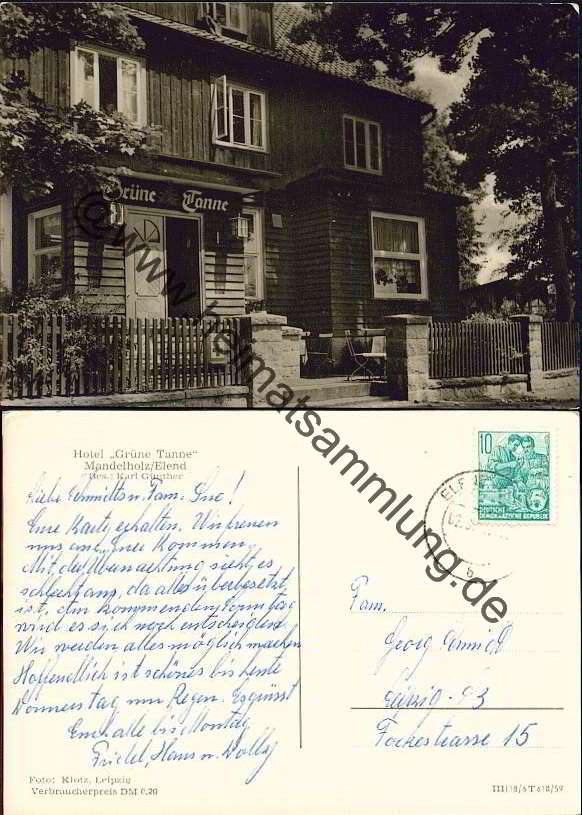 Grüne Tanne
@ www.heimatsammlung.de
Hotel „Grüne Tanne"
Mandelholz/Elend
Bes.: Karl Günther
Liebe Schmidts u. Fam.
Eure Karte erhalten. Wir freuen
uns auf Euer Kommen.
Mit der Übernachtung sieht es
schlecht aus, da alles überbesetzt
ist, am kommenden Sonntag
wird es sich noch entscheiden.
Wir werden alles möglich machen
Hoffendlich ist schönes bis heute
Donnerstag nur Regen. Es grüsst
Euch alle bis Montag
Friedel, Hans u. Dolly
Foto: Klotz, Leipzig
Verbraucherpreis DM 0,20
10
DEUTSCHE
DEMOKRATISCHE REPUBLIK
Fam.
Georg Schmidt
Leipzig-
Fockestrasse 15
III/18/6 T 618/59